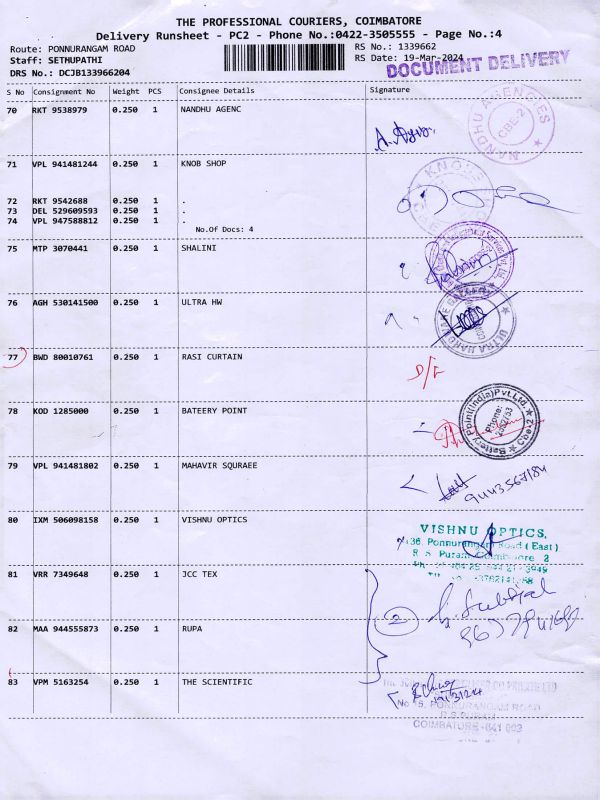 THE PROFESSIONAL COURIERS, COIMBATORE
Delivery Runsheet - PC2 - Phone No.:0422-3505555 - Page No.:4
Route: PONNURANGAM ROAD
RS No.: 1339662
Staff: SETHUPATHI
RS Date: 19-Mar-2024
DRS No.: DCJB133966204
DOCUMENT DELIVERY
S No Consignment No Weight PCS Consignee Details Signature
70 RKT 9538979 0.250 1 NANDHU AGENC
NANDHU AGENCIES
CBE-2
71 VPL 941481244 0.250 1 KNOB SHOP
72 RKT 9542688 0.250 1 .
73 DEL 529609593 0.250 1 .
74 VPL 947588812 0.250 1 .
No.Of Docs: 4
75 MTP 3070441 0.250 1 SHALINI
76 AGH 530141500 0.250 1 ULTRA HW
77 BWD 80010761 0.250 1 RASI CURTAIN
D/L
78 KOD 1285000 0.250 1 BATEERY POINT
Battery Point(India)Pvt.Ltd.
Phone:
Cbe-2
79 VPL 941481802 0.250 1 MAHAVIR SQURAEE
9443567184
80 IXM 506098158 0.250 1 VISHNU OPTICS
VISHNU OPTICS,
136, Ponnurangam Road (East)
R.S. Puram, Coimbatore 2
81 VRR 7349648 0.250 1 JCC TEX
2
82 MAA 944555873 0.250 1 RUPA
83 VPM 5163254 0.250 1 THE SCIENTIFIC
19/3/24
PONNURANGAM ROAD
R.S.PURAM
COIMBATORE-641 002